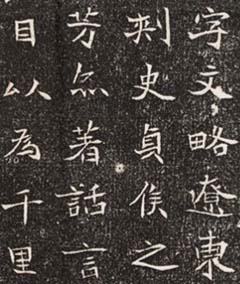 字文略遼東
刺史貞侯之
芳烋著話言
目以為千里